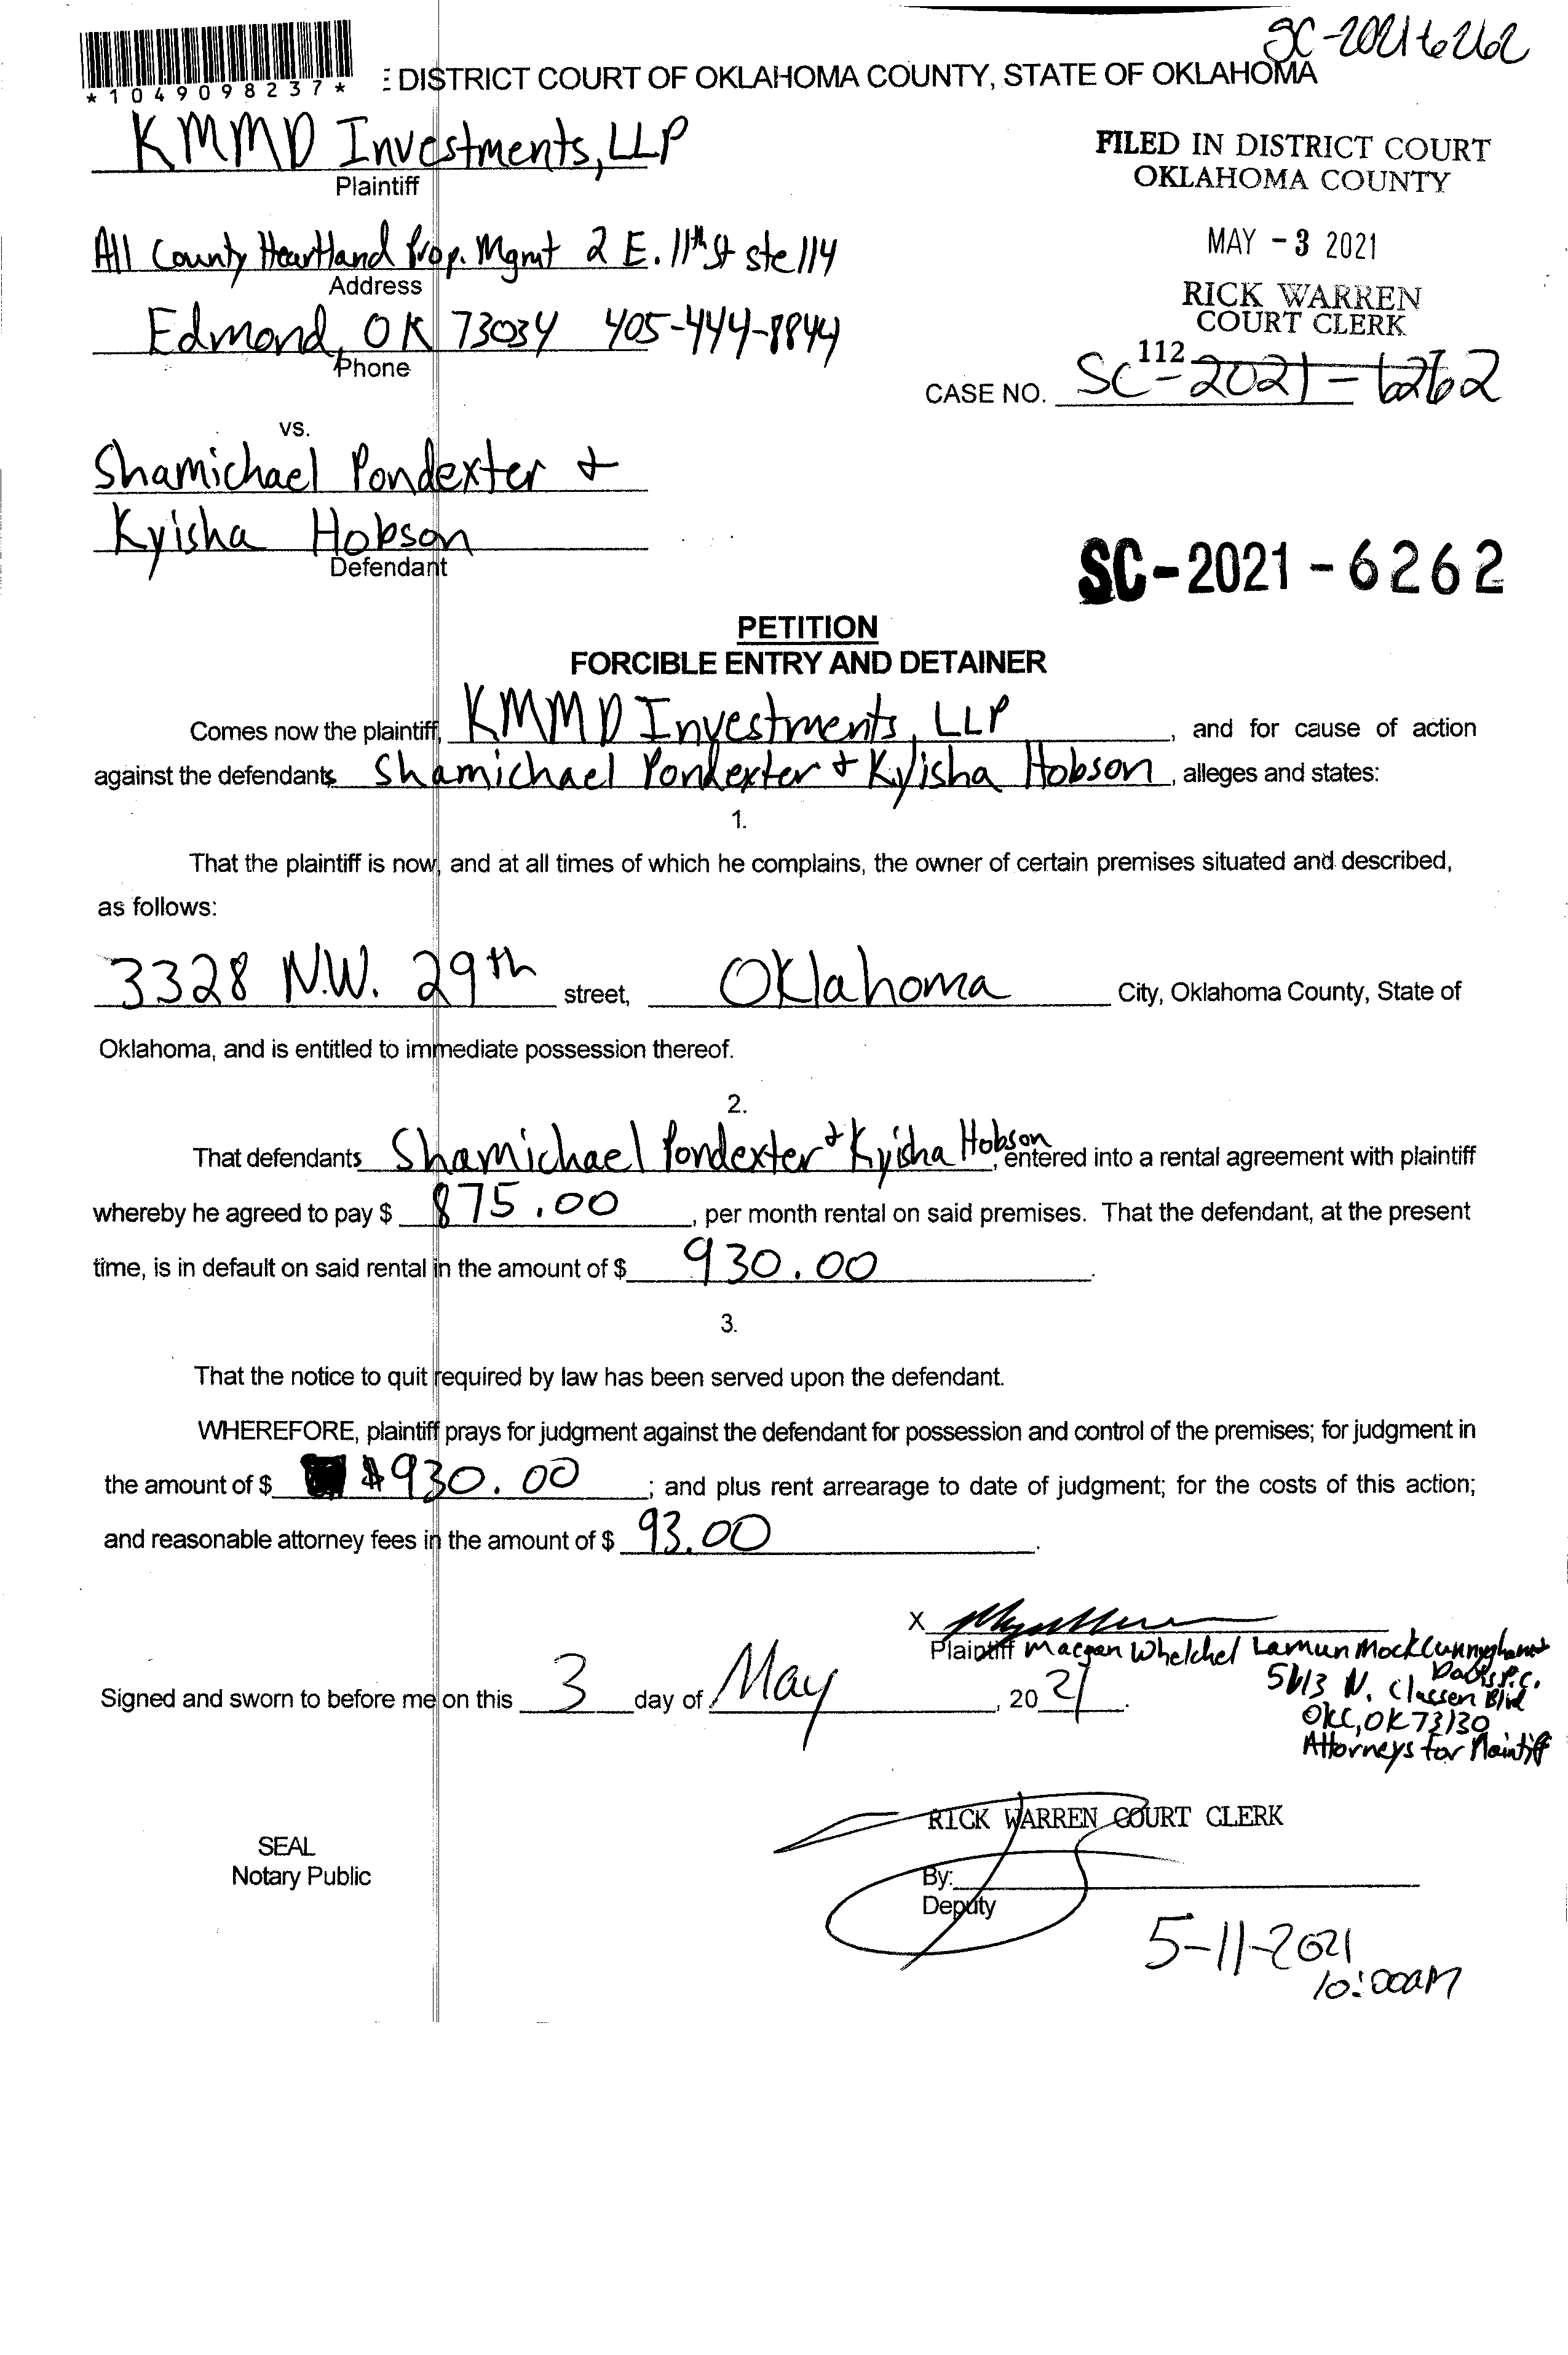 SC-2021-6262
*1049098237*
E DISTRICT COURT OF OKLAHOMA COUNTY, STATE OF OKLAHOMA
KMMD Investments, LLP
Plaintiff
FILED IN DISTRICT COURT
OKLAHOMA COUNTY
All County Heartland Prop. Mgmt 2 E. 11th St ste 114
Address
MAY - 3 2021
Edmond, OK 73034 405-444-8844
Phone
RICK WARREN
COURT CLERK
112
CASE NO. SC-2021-6262
vs.
Shamichael Pondexter +
Kyisha Hobson
Defendant
SC-2021-6262
PETITION
FORCIBLE ENTRY AND DETAINER
Comes now the plaintiff, KMMD Investments, LLP, and for cause of action
against the defendants Shamichael Pondexter + Kyisha Hobson, alleges and states:
1.
That the plaintiff is now, and at all times of which he complains, the owner of certain premises situated and described,
as follows:
3328 N.W. 29th street, Oklahoma City, Oklahoma County, State of
Oklahoma, and is entitled to immediate possession thereof.
2.
That defendants Shamichael Pondexter + Kyisha Hobson, entered into a rental agreement with plaintiff
whereby he agreed to pay $ 875.00, per month rental on said premises. That the defendant, at the present
time, is in default on said rental in the amount of $ 930.00.
3.
That the notice to quit required by law has been served upon the defendant.
WHEREFORE, plaintiff prays for judgment against the defendant for possession and control of the premises; for judgment in
the amount of $ $930.00; and plus rent arrearage to date of judgment; for the costs of this action;
and reasonable attorney fees in the amount of $ 93.00.
X
Plaintiff Maegen Whelchel Lamun Mock Cunnyngham
Davis P.C.
5613 N. Classen Blvd
OKC, OK 73130
Attorneys for Plaintiff
Signed and sworn to before me on this 3 day of May, 2021.
RICK WARREN COURT CLERK
SEAL
Notary Public
By:
Deputy
5-11-2021
10:00AM